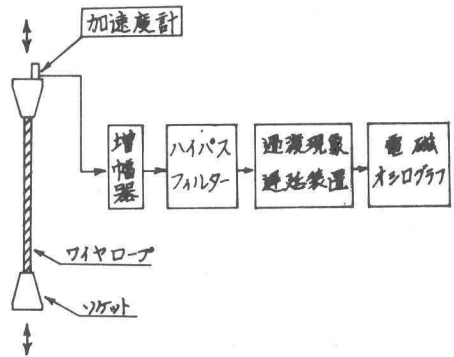 加速度計
増
幅
器
ハイパス
フィルター
過渡現象
遅延装置
電磁
オシログラフ
ワイヤロープ
ソケット